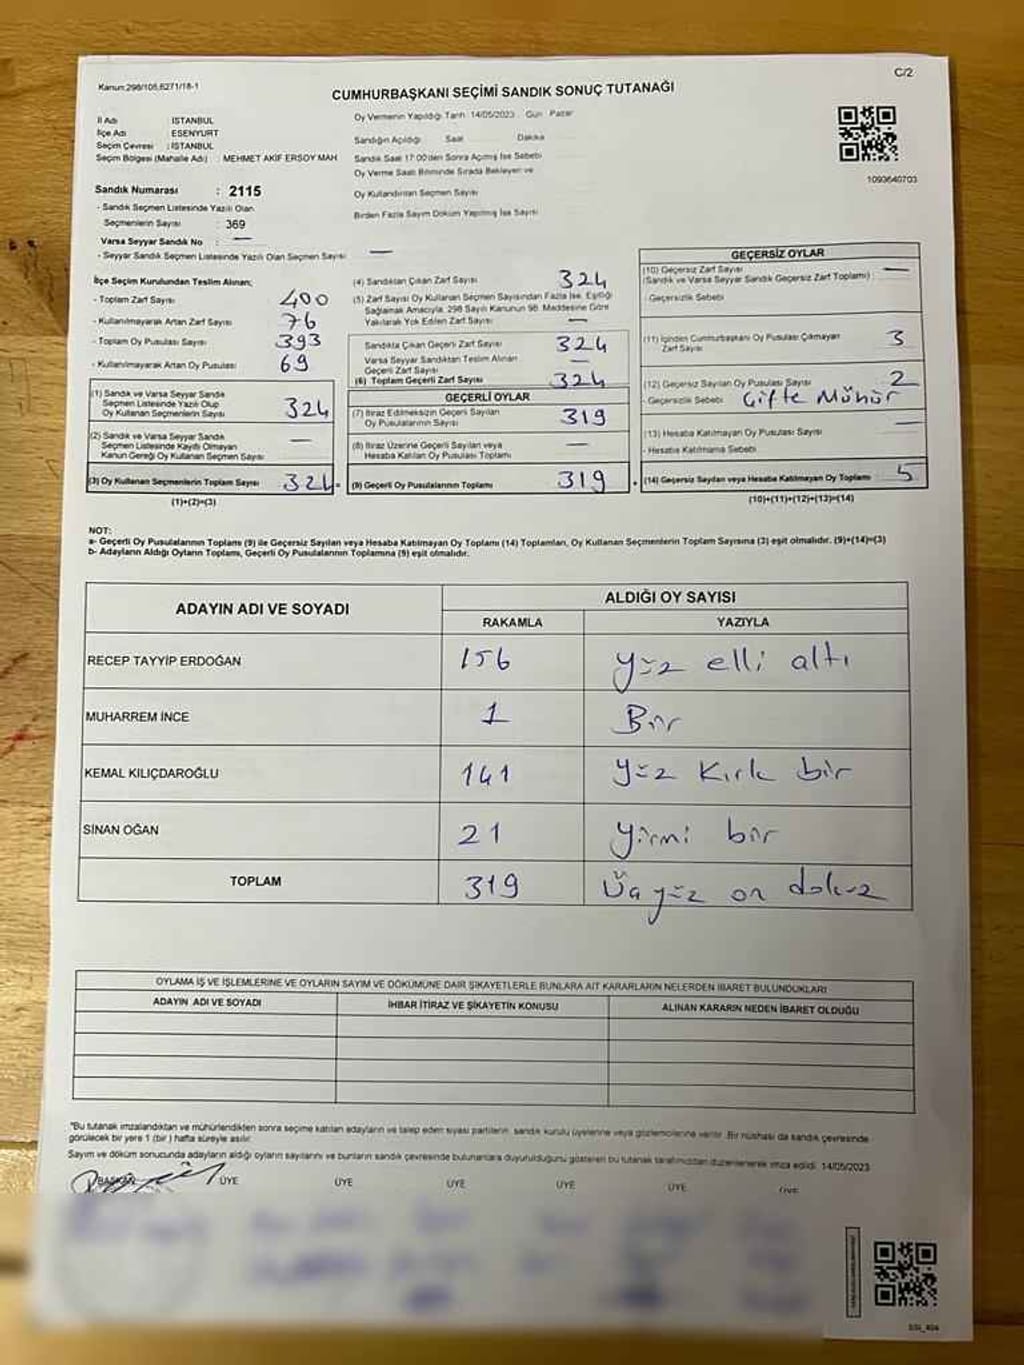 Kanun:298/105,6271/18-1
C/2
CUMHURBAŞKANI SEÇİMİ SANDIK SONUÇ TUTANAĞI
İl Adı : İSTANBUL
İlçe Adı : ESENYURT
Seçim Çevresi : İSTANBUL
Seçim Bölgesi (Mahalle Adı) : MEHMET AKİF ERSOY MAH
Sandık Numarası : 2115
- Sandık Seçmen Listesinde Yazılı Olan
Seçmenlerin Sayısı : 369
Varsa Seyyar Sandık No : —
- Seyyar Sandık Seçmen Listesinde Yazılı Olan Seçmen Sayısı : —
Oy Vermenin Yapıldığı Tarih 14/05/2023 Gün Pazar
Sandığın Açıldığı Saat Dakika
Sandık Saat 17:00'den Sonra Açılmış İse Sebebi
Oy Verme Saati Bitiminde Sırada Bekleyen ve
Oy Kullandırılan Seçmen Sayısı
Birden Fazla Sayım Döküm Yapılmış İse Sayısı
1093640703
İlçe Seçim Kurulundan Teslim Alınan;
- Toplam Zarf Sayısı 400
- Kullanılmayarak Artan Zarf Sayısı 76
- Toplam Oy Pusulası Sayısı 393
- Kullanılmayarak Artan Oy Pusulası 69
(1) Sandık ve Varsa Seyyar Sandık
Seçmen Listesinde Yazılı Olup
Oy Kullanan Seçmenlerin Sayısı 324
(2) Sandık ve Varsa Seyyar Sandık
Seçmen Listesinde Kayıtlı Olmayan
Kanun Gereği Oy Kullanan Seçmen Sayısı —
(3) Oy Kullanan Seçmenlerin Toplam Sayısı 324 =
(1)+(2)=(3)
(4) Sandıktan Çıkan Zarf Sayısı 324
(5) Zarf Sayısı Oy Kullanan Seçmen Sayısından Fazla İse, Eşitliği
Sağlamak Amacıyla, 298 Sayılı Kanunun 98. Maddesine Göre
Yakılarak Yok Edilen Zarf Sayısı —
Sandıkta Çıkan Geçerli Zarf Sayısı 324
Varsa Seyyar Sandıktan Teslim Alınan
Geçerli Zarf Sayısı —
(6) Toplam Geçerli Zarf Sayısı 324
GEÇERLİ OYLAR
(7) İtiraz Edilmeksizin Geçerli Sayılan
Oy Pusulası Sayısı 319
(8) İtiraz Üzerine Geçerli Sayılan veya
Hesaba Katılan Oy Pusulası Toplamı —
(9) Geçerli Oy Pusulalarının Toplamı 319 +
GEÇERSİZ OYLAR
(10) Geçersiz Zarf Sayısı —
(Sandık ve Varsa Seyyar Sandık Geçersiz Zarf Toplamı)
- Geçersizlik Sebebi
(11) İçinden Cumhurbaşkanı Oy Pusulası Çıkmayan
Zarf Sayısı 3
(12) Geçersiz Sayılan Oy Pusulası Sayısı 2
- Geçersizlik Sebebi Çifte Mühür
(13) Hesaba Katılmayan Oy Pusulası Sayısı —
- Hesaba Katılmama Sebebi
(14) Geçersiz Sayılan veya Hesaba Katılmayan Oy Toplamı 5
(10)+(11)+(12)+(13)=(14)
NOT:
a- Geçerli Oy Pusulalarının Toplamı (9) ile Geçersiz Sayılan veya Hesaba Katılmayan Oy Toplamı (14) Toplamları, Oy Kullanan Seçmenlerin Toplam Sayısına (3) eşit olmalıdır. (9)+(14)=(3)
b- Adayların Aldığı Oyların Toplamı, Geçerli Oy Pusulalarının Toplamına (9) eşit olmalıdır.
ADAYIN ADI VE SOYADI
ALDIĞI OY SAYISI
RAKAMLA YAZIYLA
RECEP TAYYİP ERDOĞAN 156 yüz elli altı
MUHARREM İNCE 1 Bir
KEMAL KILIÇDAROĞLU 141 yüz kırk bir
SİNAN OĞAN 21 yirmi bir
TOPLAM 319 Üç yüz on dokuz
OYLAMA İŞ VE İŞLEMLERİNE VE OYLARIN SAYIM VE DÖKÜMÜNE DAİR ŞİKAYETLERLE BUNLARA AİT KARARLARIN NELERDEN İBARET BULUNDUKLARI
ADAYIN ADI VE SOYADI İHBAR İTİRAZ VE ŞİKAYETİN KONUSU ALINAN KARARIN NEDEN İBARET OLDUĞU
"Bu tutanak imzalandıktan ve mühürlendikten sonra seçime katılan adayların ve talep eden siyasi partilerin, sandık kurulu üyelerine veya gözlemcilerine verilir. Bir nüshası da sandık çevresinde
görülecek bir yere 1 (bir) hafta süreyle asılır.
Sayım ve döküm sonucunda adayların aldığı oyların sayılarını ve bunların sandık çevresinde bulunanlara duyurulduğunu gösteren bu tutanak tarafımızdan düzenlenerek imza edildi. 14/05/2023
BAŞKAN ÜYE ÜYE ÜYE ÜYE ÜYE ÜYE